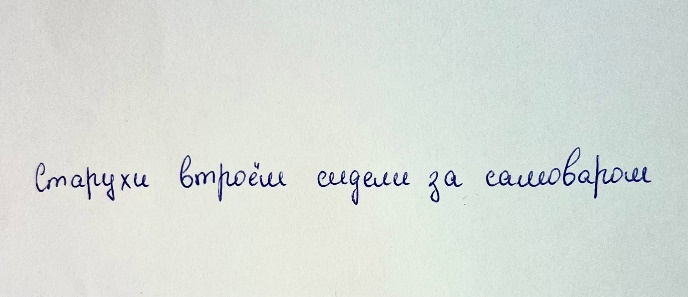 Старухи втроём сидели за самоваром